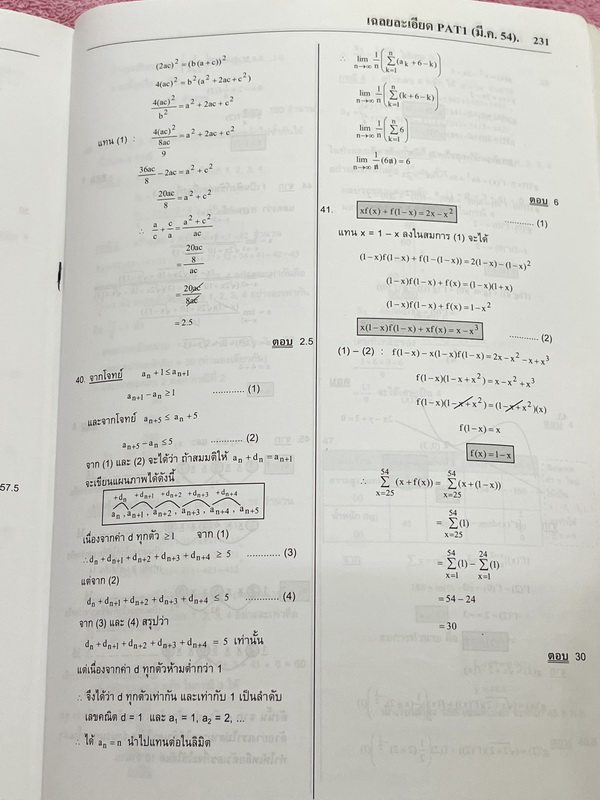 เฉลยละเอียด PAT1 (มี.ค. 54). 231
57.5
(2ac)² = (b(a+c))²
4(ac)² = b²(a² + 2ac + c²)
4(ac)²/b² = a² + 2ac + c²
แทน (1) : 4(ac)²/(8ac/9) = a² + 2ac + c²
36ac/8 − 2ac = a² + c²
20ac/8 = a² + c²
∴ a/c + c/a = (a² + c²)/ac
= (20ac/8)/ac
= 20ac/8ac
= 2.5
ตอบ 2.5
40. จากโจทย์ aₙ + 1 ≤ aₙ₊₁
aₙ₊₁ − aₙ ≥ 1 ............ (1)
และจากโจทย์ aₙ₊₅ ≤ aₙ + 5
aₙ₊₅ − aₙ ≤ 5 ............ (2)
จาก (1) และ (2) จะได้ว่า ถ้าสมมติให้ aₙ + dₙ = aₙ₊₁
จะเขียนแผนภาพได้ดังนี้
+dₙ +dₙ₊₁ +dₙ₊₂ +dₙ₊₃ +dₙ₊₄
aₙ , aₙ₊₁ , aₙ₊₂ , aₙ₊₃ , aₙ₊₄ , aₙ₊₅
เนื่องจากค่า d ทุกตัว ≥ 1 จาก (1)
∴ dₙ + dₙ₊₁ + dₙ₊₂ + dₙ₊₃ + dₙ₊₄ ≥ 5 ............ (3)
แต่จาก (2)
dₙ + dₙ₊₁ + dₙ₊₂ + dₙ₊₃ + dₙ₊₄ ≤ 5 ............ (4)
จาก (3) และ (4) สรุปว่า
dₙ + dₙ₊₁ + dₙ₊₂ + dₙ₊₃ + dₙ₊₄ = 5 เท่านั้น
แต่เนื่องจากค่า d ทุกตัวห้ามต่ำกว่า 1
∴ จึงได้ว่า d ทุกตัวเท่ากัน และเท่ากับ 1 เป็นลำดับ
เลขคณิต d = 1 และ a₁ = 1, a₂ = 2, ...
∴ ได้ aₙ = n นำไปแทนต่อในลิมิต
∴ lim n→∞ 1/n (Σ k=1 n (aₖ + 6 − k))
lim n→∞ 1/n (Σ k=1 n (k + 6 − k))
lim n→∞ 1/n (Σ k=1 n 6)
lim n→∞ 1/n (6n) = 6
ตอบ 6
41. xf(x) + f(1−x) = 2x − x² ............ (1)
แทน x = 1 − x ลงในสมการ (1) จะได้
(1−x)f(1−x) + f(1−(1−x)) = 2(1−x) − (1−x)²
(1−x)f(1−x) + f(x) = (1−x)(1+x)
(1−x)f(1−x) + f(x) = 1 − x²
x(1−x)f(1−x) + xf(x) = x − x³ ............ (2)
(1) − (2) : f(1−x) − x(1−x)f(1−x) = 2x − x² − x + x³
f(1−x)(1 − x + x²) = x − x² + x³
f(1−x)(1 − x + x²) = (1 − x + x²)(x)
f(1−x) = x
f(x) = 1 − x
∴ Σ x=25 54 (x + f(x)) = Σ x=25 54 (x + (1−x))
= Σ x=25 54 (1)
= Σ x=1 54 (1) − Σ x=1 24 (1)
= 54 − 24
= 30
ตอบ 30